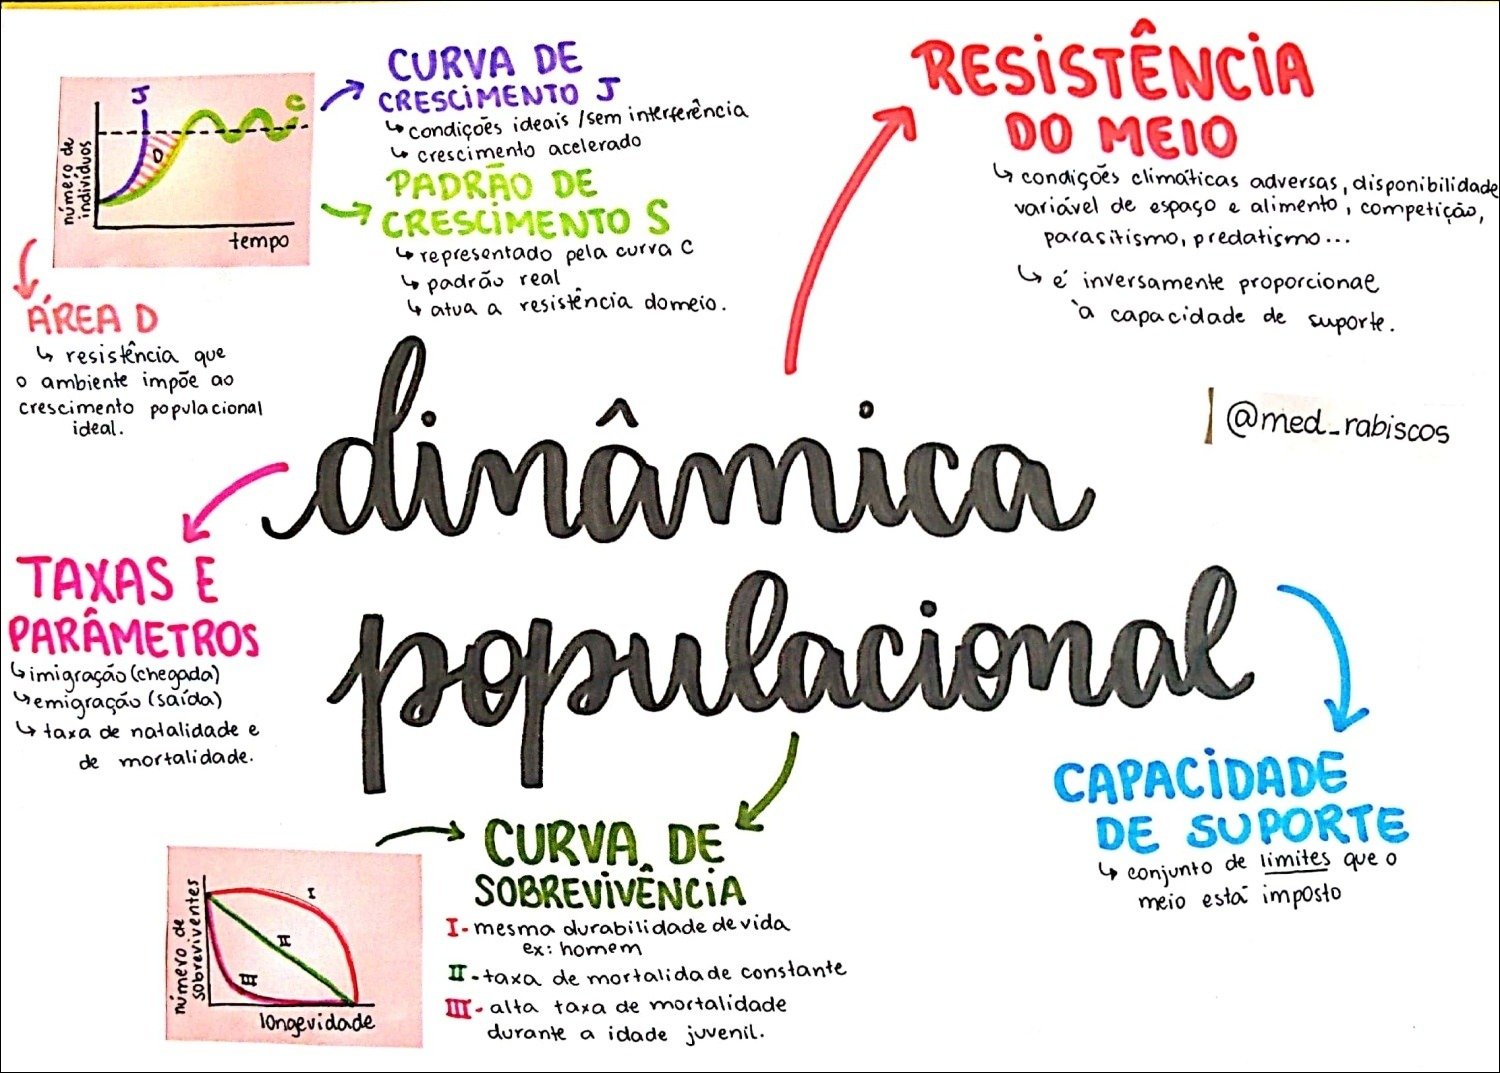 J
C
D
número de
indivíduos
tempo
CURVA DE
CRESCIMENTO J
↳ condições ideais / sem interferência
↳ crescimento acelerado
PADRÃO DE
CRESCIMENTO S
↳ representado pela curva C
↳ padrão real
↳ atua a resistência do meio.
ÁREA D
↳ resistência que
o ambiente impõe ao
crescimento populacional
ideal.
RESISTÊNCIA
DO MEIO
↳ condições climáticas adversas, disponibilidade
variável de espaço e alimento, competição,
parasitismo, predatismo...
↳ é inversamente proporcional
à capacidade de suporte.
@med_rabiscos
dinâmica
populacional
TAXAS E
PARÂMETROS
↳ imigração (chegada)
↳ emigração (saída)
↳ taxa de natalidade e
de mortalidade.
CAPACIDADE
DE SUPORTE
↳ conjunto de limites que o
meio está imposto
CURVA DE
SOBREVIVÊNCIA
I - mesma durabilidade de vida
ex: homem
II - taxa de mortalidade constante
III - alta taxa de mortalidade
durante a idade juvenil.
número de
sobreviventes
I
II
III
longevidade